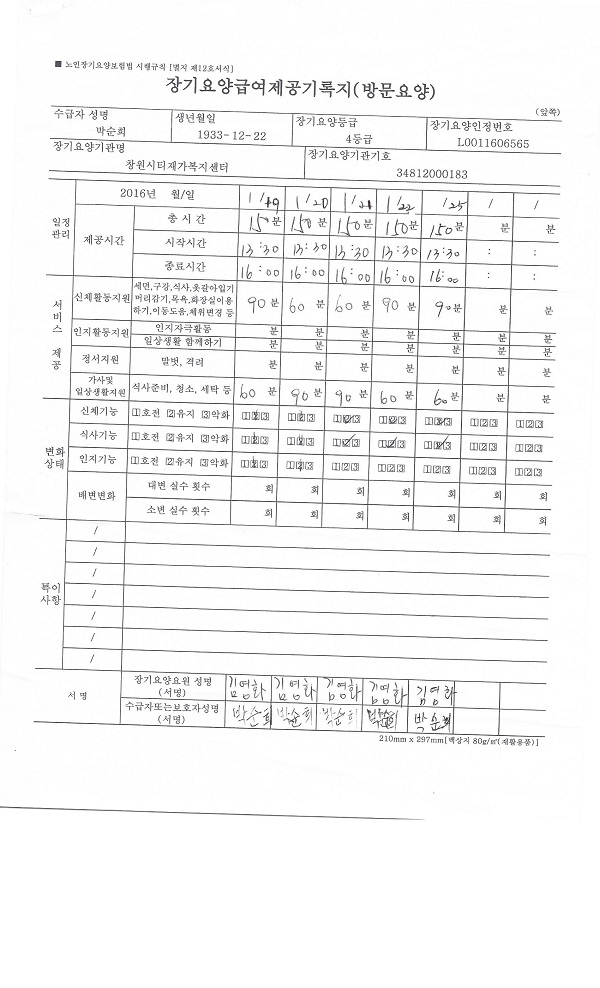 ■ 노인장기요양보험법 시행규칙 [별지 제12호서식]
장기요양급여제공기록지(방문요양)
(앞쪽)
수급자 성명 생년월일 장기요양등급 장기요양인정번호
박순희 1933-12-22 4등급 L0011606565
장기요양기관명 장기요양기관기호
창원시티재가복지센터 34812000183
일정관리 2016년 월/일 1/19 1/20 1/21 1/22 1/25 / /
제공시간 총 시간 150분 150분 150분 150분 150분 분 분
시작시간 13:30 13:30 13:30 13:30 13:30 : :
종료시간 16:00 16:00 16:00 16:00 16:00 : :
서비스 제공 신체활동지원 세면,구강,식사,옷갈아입기 머리감기,목욕,화장실이용 하기,이동도움,체위변경 등 90분 60분 60분 90분 90분 분 분
인지활동지원 인지자극활동 분 분 분 분 분 분 분
일상생활 함께하기 분 분 분 분 분 분 분
정서지원 말벗, 격려 분 분 분 분 분 분 분
가사및 일상생활지원 식사준비, 청소, 세탁 등 60분 90분 90분 60분 60분 분 분
변화상태 신체기능 1호전 2유지 3악화 123 123 123 123 123 123 123
식사기능 1호전 2유지 3악화 123 123 123 123 123 123 123
인지기능 1호전 2유지 3악화 123 123 123 123 123 123 123
배변변화 대변 실수 횟수 회 회 회 회 회 회 회
소변 실수 횟수 회 회 회 회 회 회 회
특이사항 /
/
/
/
/
/
/
서 명 장기요양요원 성명 (서명) 김영화 김영화 김영화 김영화 김영화
수급자또는보호자성명 (서명) 박순희 박순희 박순희 박순희 박순희
210mm x 297mm[백상지 80g/㎡(재활용품)]